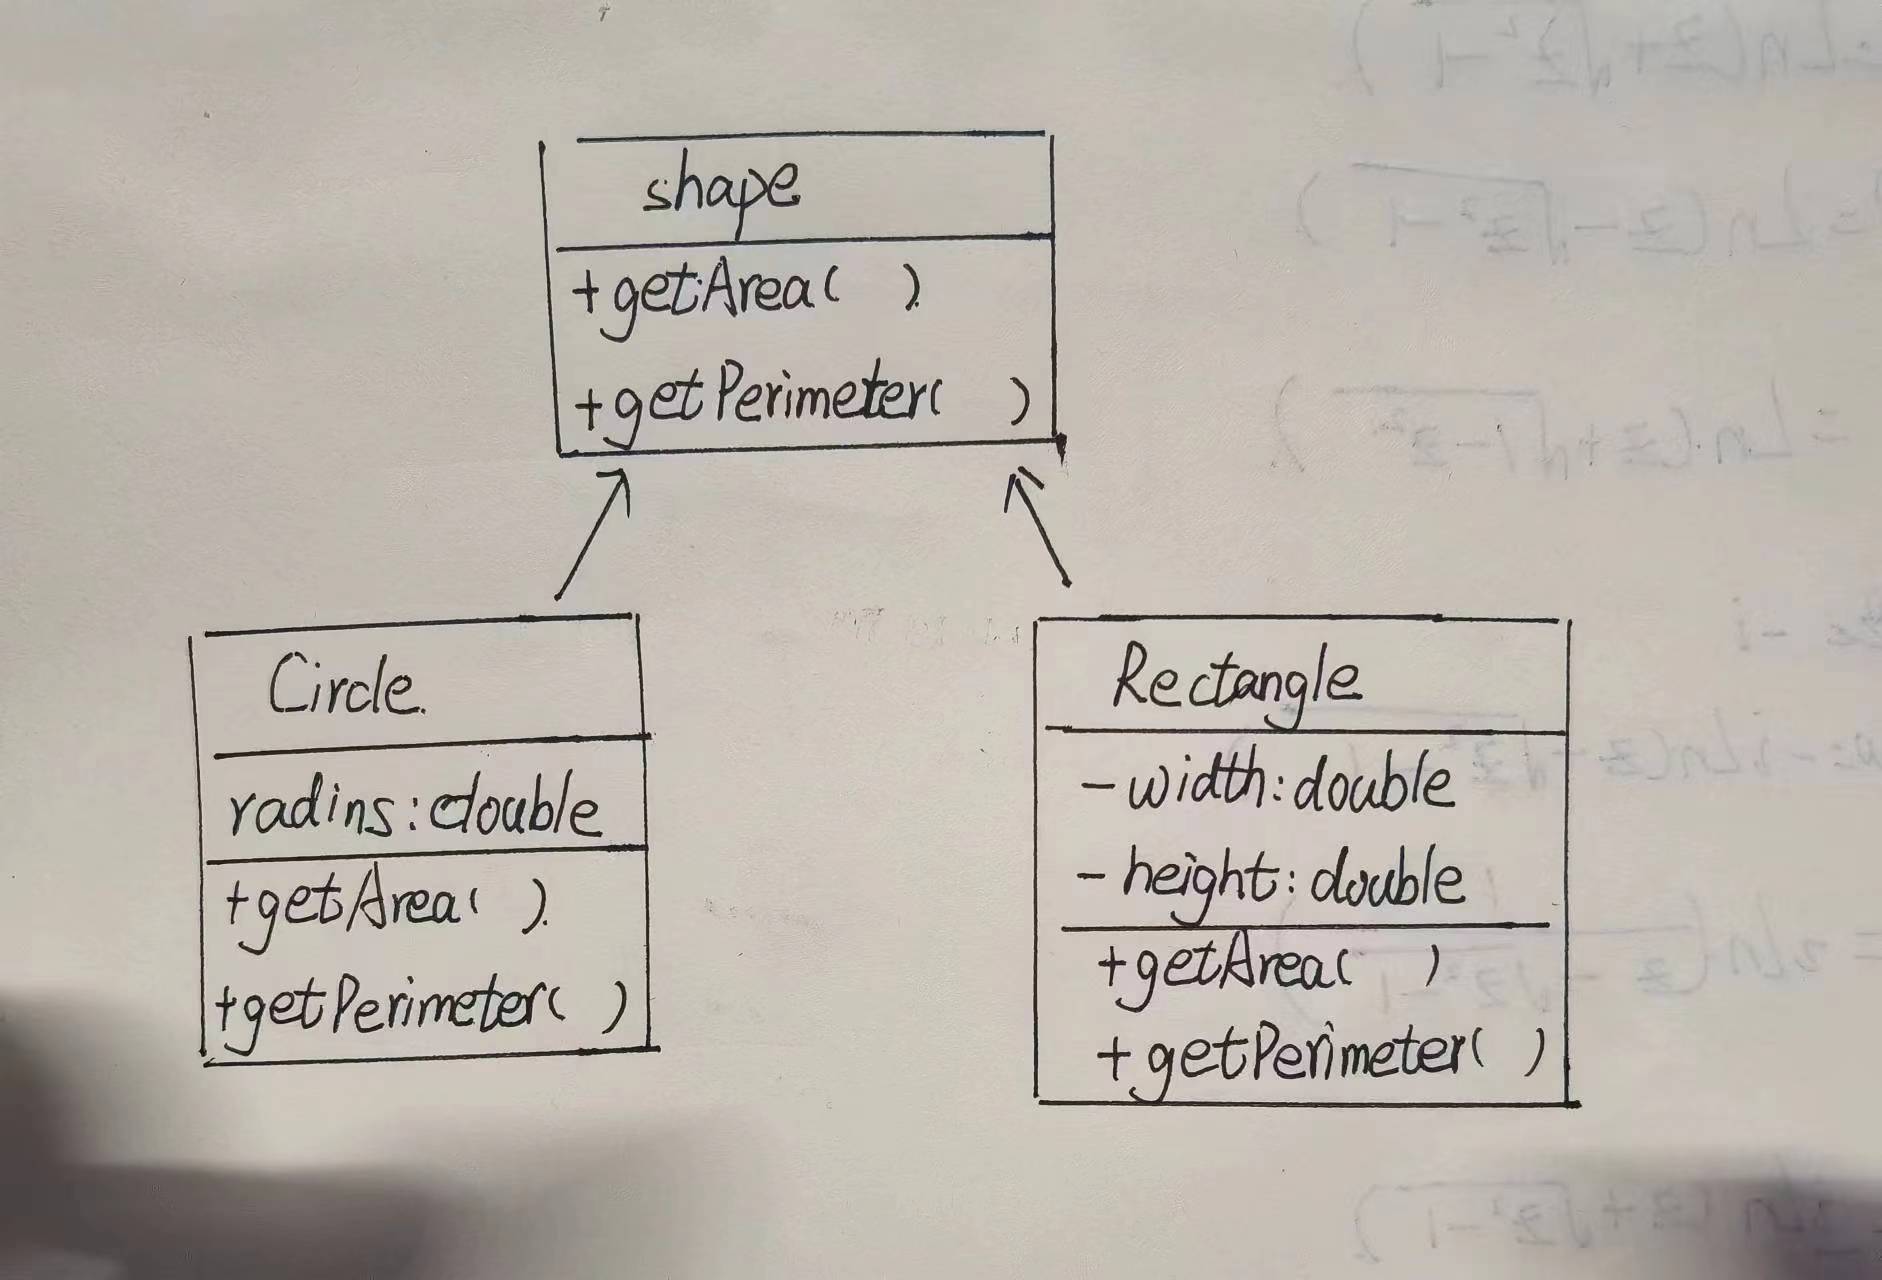 shape
+getArea( )
+getPerimeter( )
Circle
radins:double
+getArea( )
+getPerimeter( )
Rectangle
-width:double
-height:double
+getArea( )
+getPerimeter( )